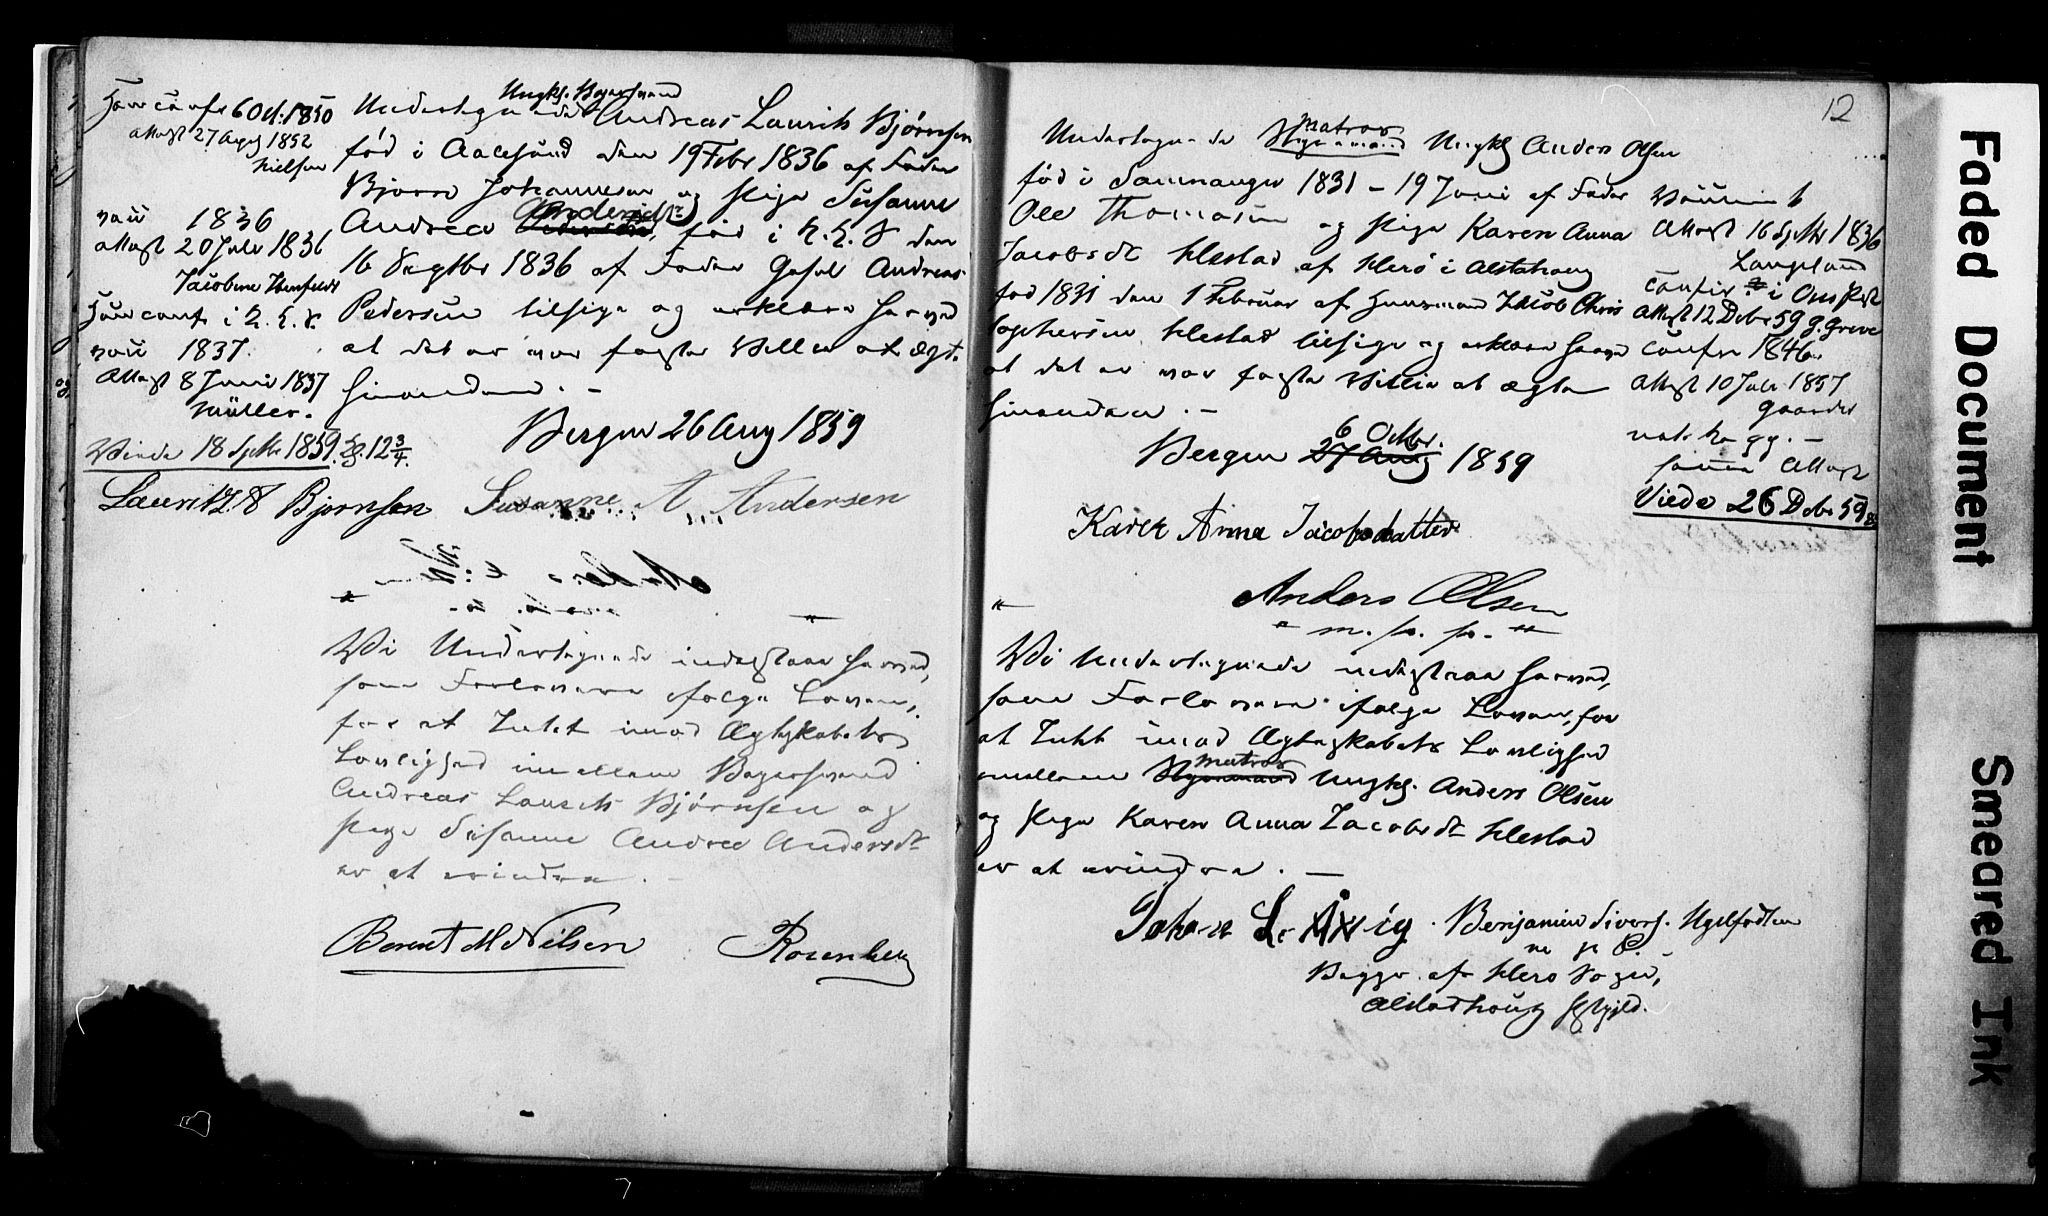 Ham conf. 6 Oct. 1850
attest 27 Aug 1852
Nielsen
vac. 1836
attest 20 Juli 1836
Jacobine
Ham conf. i
vac. 1837.
Attest 8 Juni 1837
Müller.
Viede 18 Sptbr 1859. 12 3/4.
Ungk. Bagersvend
Undertegnede Andreas Laurits Bjørnsen
fød i Aalesund den 19 Febr 1836 af Fader
Bjørn Johannesen og Pige Susanne
Andrea Andersdt, fød i den
16 Septbr 1836 af Fader Andreas
Pedersen tilsige og erklære herved
at det er vor faste Villie at ægte
hinanden. –
Bergen 26 Aug 1859
Lauritz Bjørnsen Susanne A Andersen
Vi Undertegnede indestaae herved,
som Forlovere ifølge Loven,
for at Intet imod Ægteskabets
Lovlighed imellem Bagersvend
Andreas Laurits Bjørnsen og
Pige Susanne Andrea Andersdt
er at erindre. –
Berent M Nilsen Rosenberg
12
Undertegnede Matros Ungk Anders Olsen
fød i Samnanger 1831 – 19 Juni af Fader
Ole Thomasen og Pige Karen Anna
Jacobsdt Hestad af Herø i Alstahoug
fød 1831 den 1 Februar af Huusmand Jacob Chris
tophersen Hestad tilsige og erklære herved
at det er vor faste Villie at ægte
hinanden. –
6 Octbr.
Bergen 27 Aug 1859
Karen Anna Jacobsdatter
Anders Olsen
" m. p. p. "
Vi Undertegnede indestaae herved,
som Forlovere ifølge Loven, for
at Intet imod Ægteskabets Lovlighed
Matros
imellem Ungk. Anders Olsen
og Pige Karen Anna Jacobsdt Hestad
er at erindre. –
Benjamin Sivers.
Begge af Herø Sogn,
Alstathoug
Attest 16 Sptbr 1836
Langeland
confir. i
Attest 12 Debr 59 G. Greve
confir 1846
Attest 10 Juli 1857
Gaarder
Attest
Viede 26 Debr 59
Faded Document
Smeared Ink